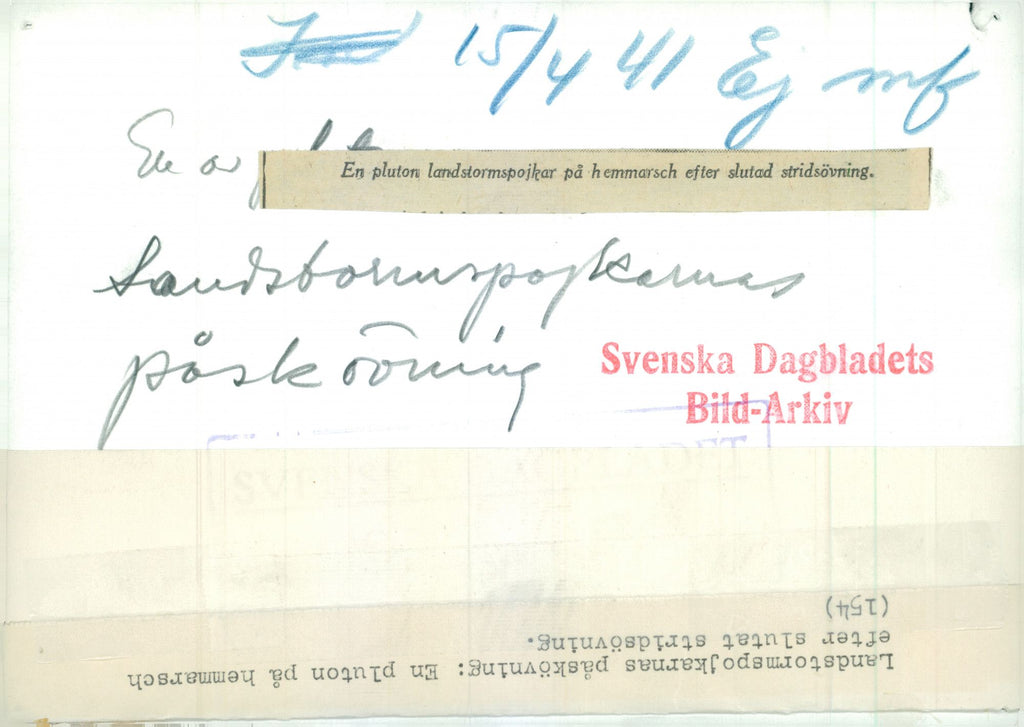 15/4 41 Ej mf
En av
En pluton landstormspojkar på hemmarsch efter slutad stridsövning.
Landstormspojkarnas
påsk övning
Svenska Dagbladets
Bild-Arkiv
Landstormspojkarnas påskövning: En pluton på hemmarsch
efter slutat stridsövning.
(154)